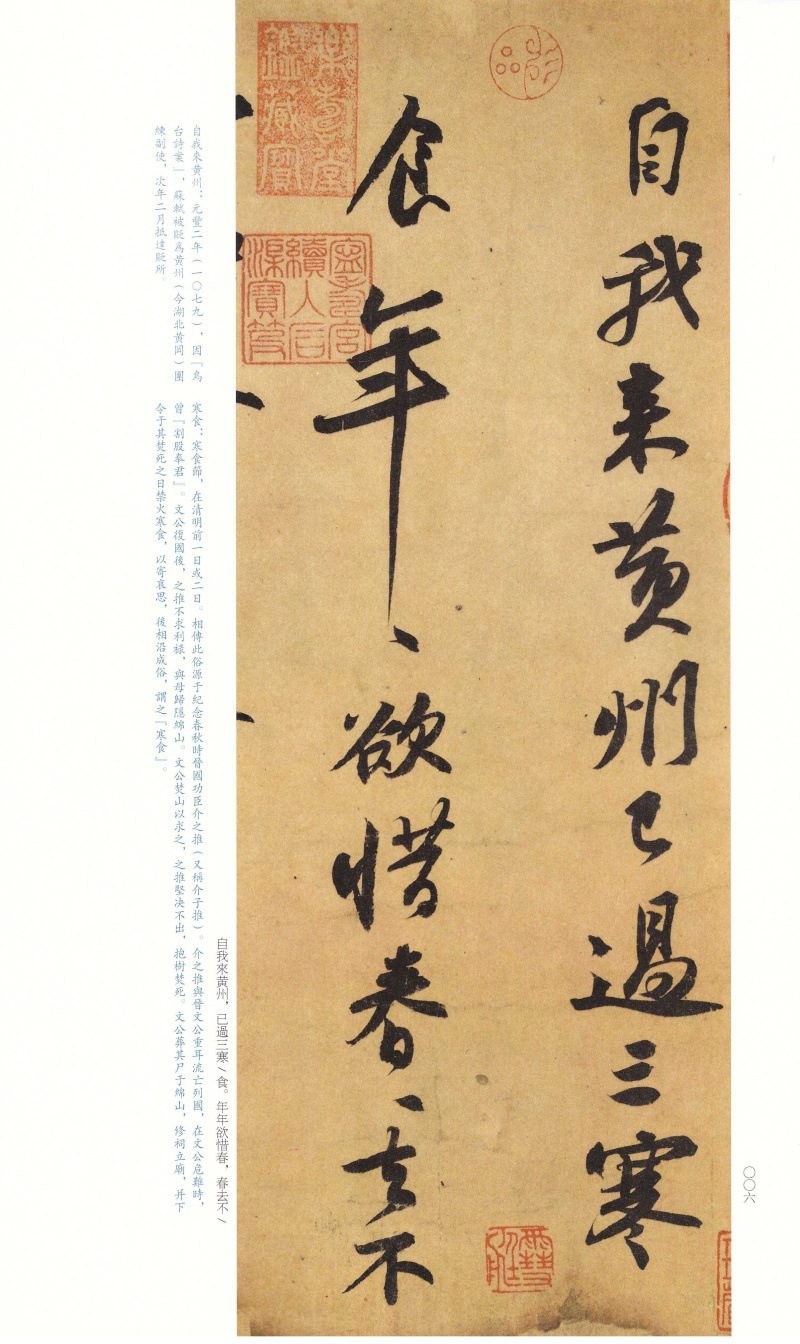 自我来黄州已過三寒
食年〻欲惜春〻去不
樂善堂鑑藏寶
寧壽宮續入石渠寶笈
自我來黄州，已過三寒/食。年年欲惜春，春去不/
自我來黄州：元豐二年（一〇七九），因『烏
台詩案』，蘇軾被貶爲黄州（今湖北黄岡）團
練副使，次年二月抵達貶所。
寒食：寒食節，在清明前一日或二日。相傳此俗源于紀念春秋時晉國功臣介之推（又稱介子推）。介之推與晉文公重耳流亡列國，在文公危難時，
曾『割股奉君』。文公復國後，之推不求利禄，與母歸隱綿山。文公焚山以求之，之推堅决不出，抱樹焚死。文公葬其尸于綿山，修祠立廟，并下
令于其焚死之日禁火寒食，以寄哀思，後相沿成俗，謂之『寒食』。
〇〇六